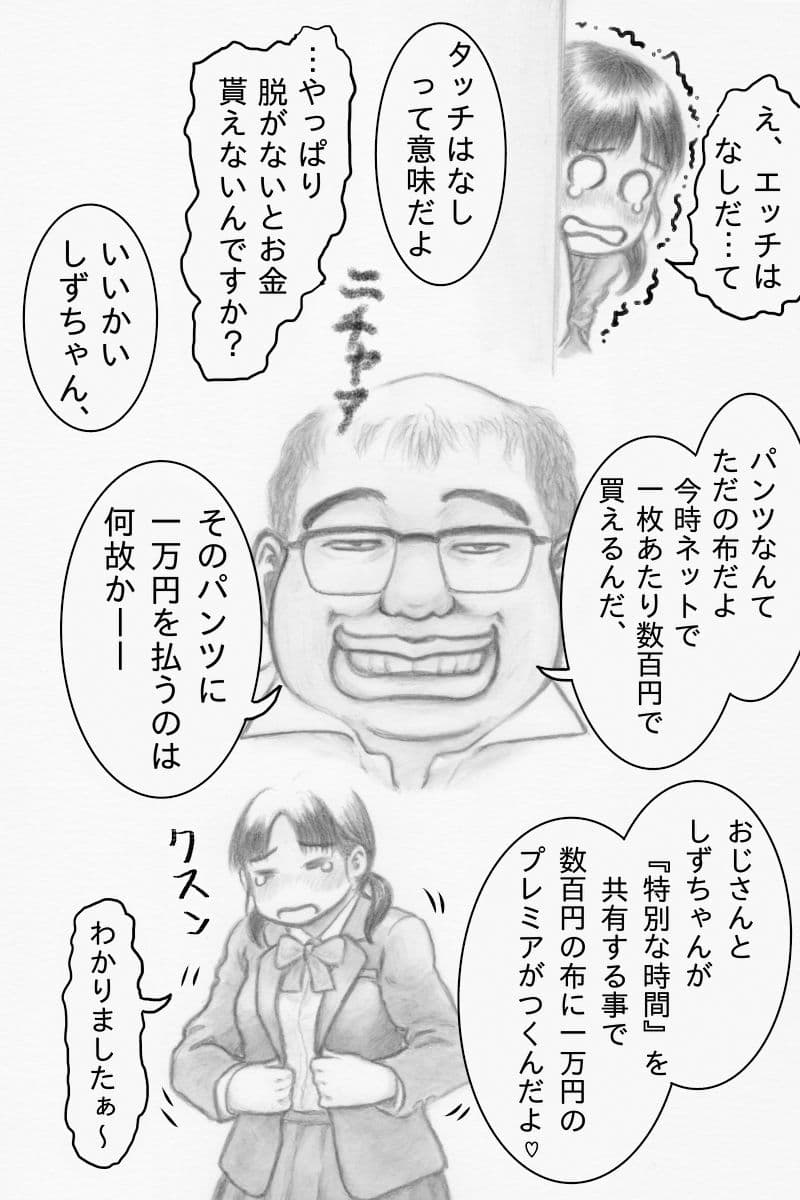 え、エッチは
なしだ…て
タッチはなし
って意味だよ
…やっぱり
脱がないとお金
貰えないんですか？
いいかい
しずちゃん、
ニチャァ
パンツなんて
ただの布だよ
今時ネットで
一枚あたり数百円で
買えるんだ、
そのパンツに
一万円を払うのは
何故かーー
おじさんと
しずちゃんが
『特別な時間』を
共有する事で
数百円の布に一万円の
プレミアがつくんだよ♡
クスン
わかりましたぁ～